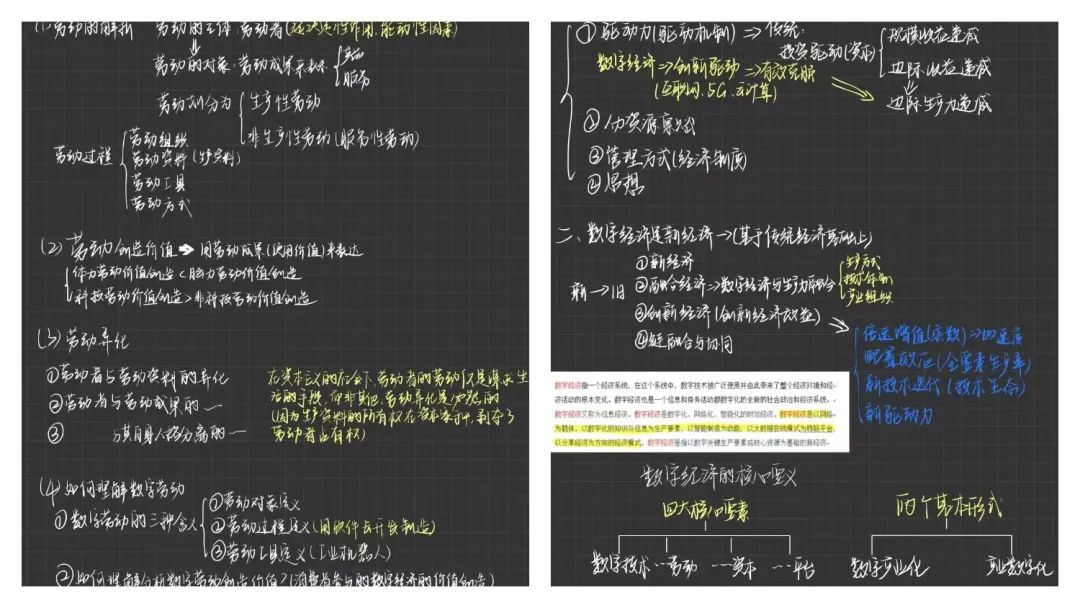 (1)劳动的解报 劳动的主体:劳动者(起决定性作用,能动性因素)
劳动的对象:劳动成果来表示
产品
服务
劳动划分为
生产性劳动
非生产性劳动(服务性劳动)
劳动过程
劳动组织
劳动资料(生产资料)
劳动工具
劳动方式
(2)劳动创造价值→用劳动成果(使用价值)来表达
体力劳动价值创造<脑力劳动价值创造
科技劳动价值创造>非科技劳动价值创造
(3)劳动异化
①劳动者与劳动资料的异化
②劳动者与劳动成果的一
③ 与其自身人格分离的一
在资本主义的社会下,劳动者的劳动仅只是谋求生
活的手段,而非其他,劳动异化是必然的
(因为生产资料的所有权在资本家手中,剥夺了
劳动者占有权)
(4)如何理解数字劳动
①数字劳动的三种含义
①劳动对象定义
②劳动过程定义(用软件去开发制造)
③劳动工具定义(工业机器人)
②如何理解分析数字劳动创造价值?(消费者参与的数字经济的价值创造)
①驱动力(驱动机制)⇒传统:
投资驱动(资本)
规模收益递减
边际收益递减
边际生产力递减
数字经济⇒创新驱动⇒有效克服
(互联网、5G、云计算)
②人力资源
③管理方式(经济制度)
④思想
二、数字经济是新经济→(基于传统经济基础上)
新→旧
①新经济
②融合经济⇒数字经济与生产力融合
生产方式
技术体制
产业组织
③创新经济(创新经济效益)
④链融合与协同
倍速增值(乘数)⇒加速度
配置效应(全要素生产率)
新技术迭代(技术生命)
新驱动力
数字经济指一个经济系统，在这个系统中，数字技术被广泛使用并由此带来了整个经济环境和经
济活动的根本变化。数字经济也是一个信息和商务活动都数字化的全新的社会政治和经济系统。
数字经济又称为信息经济。数字经济是数字化、网络化、智能化的时治经济。数字经济是以网络
为载体、以数字化的知识与信息为生产要素、以智能制造为动能、以大数据在线模式为物联平台、
以分享经济为方向的经济模式。数字经济是指以数字关键生产要素或核心资源为基础的新经济。
数字经济的核心要义
四大核心要素
两个基本形式
数字技术--劳动--资本--平台
数字产业化
产业数字化